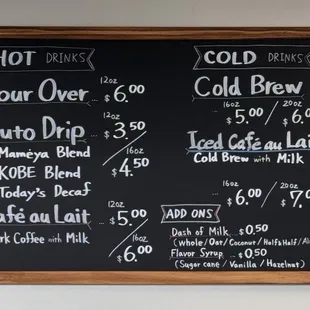 HOT DRINKS
our Over
12oz
$6.00
uto Drip
12oz
$3.50
Mameya Blend
KOBE Blend
Today's Decaf
16oz
$4.50
afé au Lait
12oz
$5.00
rk Coffee with Milk
16oz
$6.00
COLD DRINKS
Cold Brew
16oz 20oz
$5.00 / $6.0
Iced Café au Lait
Cold Brew with Milk
16oz 20oz
$6.00 / $7.0
ADD ONS
Dash of Milk $0.50
(whole/Oat/Coconut/Half&Half/Al
Flavor Syrup $0.50
(Sugar cane / Vanilla / Hazelnut)